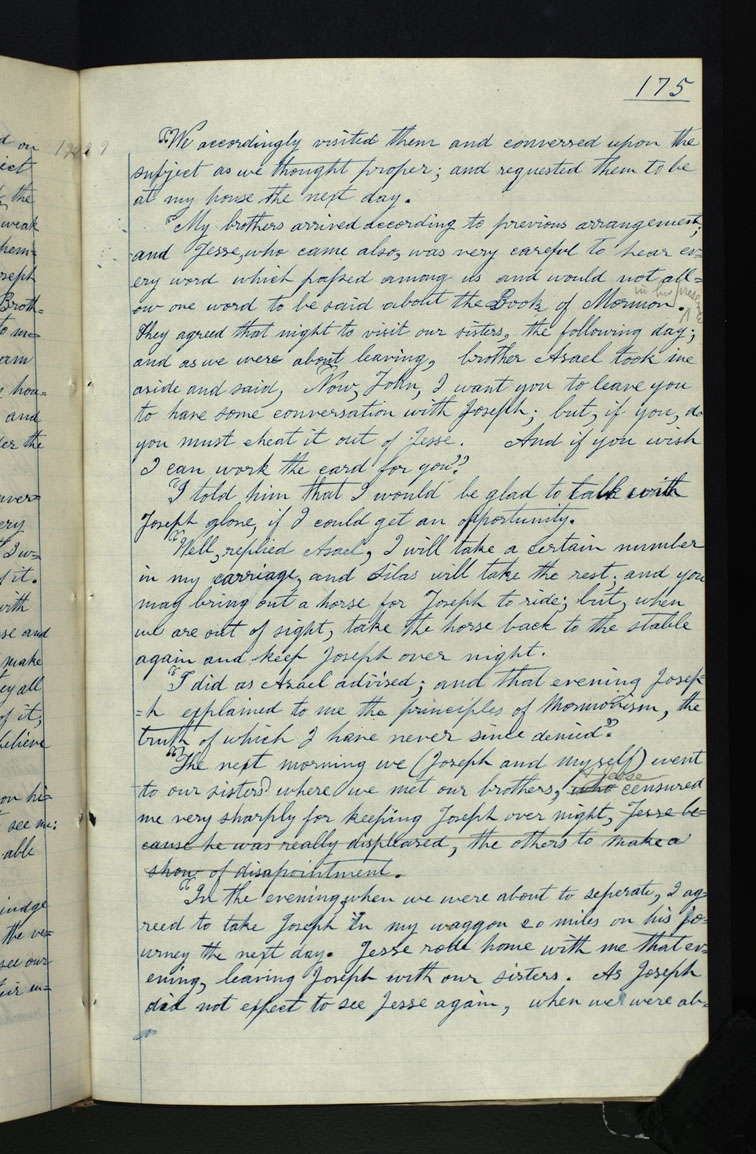 175
"We accordingly visited them and conversed upon the
subject as we thought proper; and requested them to be
at my house the next day.
"My brothers arrived according to previous arrangement;
and Jesse, who came also, was very careful to hear ev=
ery word which passed among us and would not all=
ow one word to be said about the Book of Mormon. in his
they agreed that night to visit our sisters, the following day;
and as we were about leaving, brother Asael took me
aside and said, Now, John, I want you to leave you
to have some conversation with Joseph; but, if you, do
you must cheat it out of Jesse. And if you wish
I can work the card for you".
"I told him that I would be glad to talk with
Joseph alone, if I could get an opportunity.
"Well, replied Asael, I will take a certain number
in my carriage, and Silas will take the rest, and you
may bring out a horse for Joseph to ride; but, when
we are out of sight, take the horse back to the stable
again and keep Joseph over night.
"I did as Asael advised; and that evening Josep=
=h explained to me the principles of Mormonism, the
truth of which I have never since denied."
"The next morning we (Joseph and myself) went
to our sisters where we met our brothers, who Jesse censured
me very sharply for keeping Joseph over night, Jesse be=
cause he was really displeared, the others to make a
show of disapointment.
"In the evening, when we were about to seperate, I ag=
reed to take Joseph in my waggon 20 miles on his jo=
urney the next day. Jesse rode home with me that ev=
ening, leaving Joseph with our sisters. As Joseph
did not expect to see Jesse again, when we were ab=